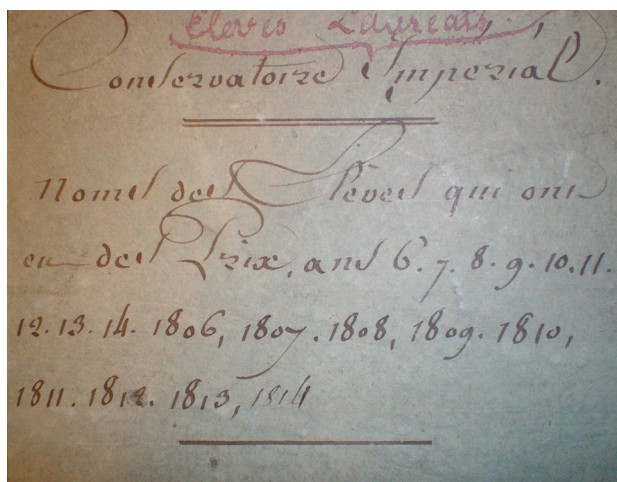 Elèves Lauréats.
Conservatoire Impérial.
Noms des Elèves qui ont
eu des Prix, ans 6. 7. 8. 9. 10. 11.
12. 13. 14. 1806, 1807. 1808, 1809. 1810,
1811. 1812. 1813, 1814